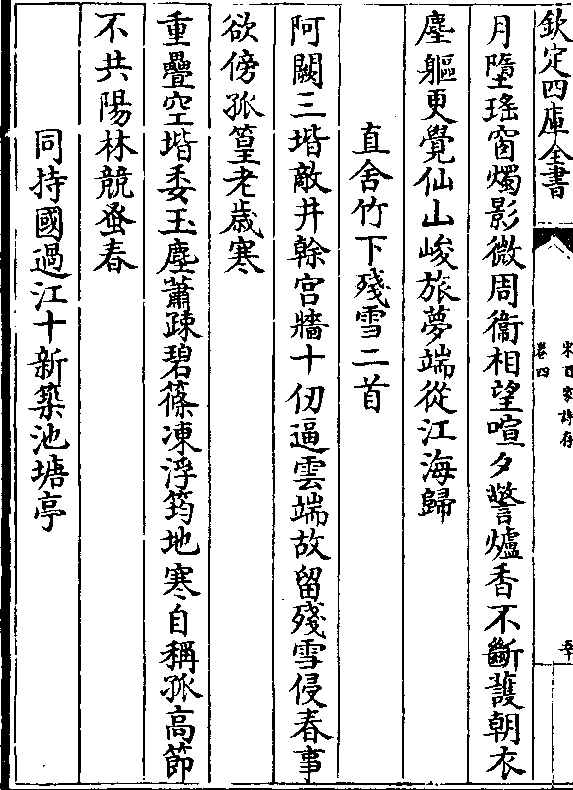 欽定四庫全書
宋百家詩存
卷四
月墮瑤窗燭影微周衞相望喧夕警爐香不斷䕶朝衣
塵軀更覺仙山峻旅夢端從江海歸
直舍竹下殘雪二首
阿閣三堦敵井幹宮牆十仞逼雲端故留殘雪侵春事
欲傍孤篁老歲寒
重疊空堦委玉塵蕭疎碧篠凍浮筠地寒自稱孤高節
不共陽林競蚤春
同持國過江十新築池塘亭